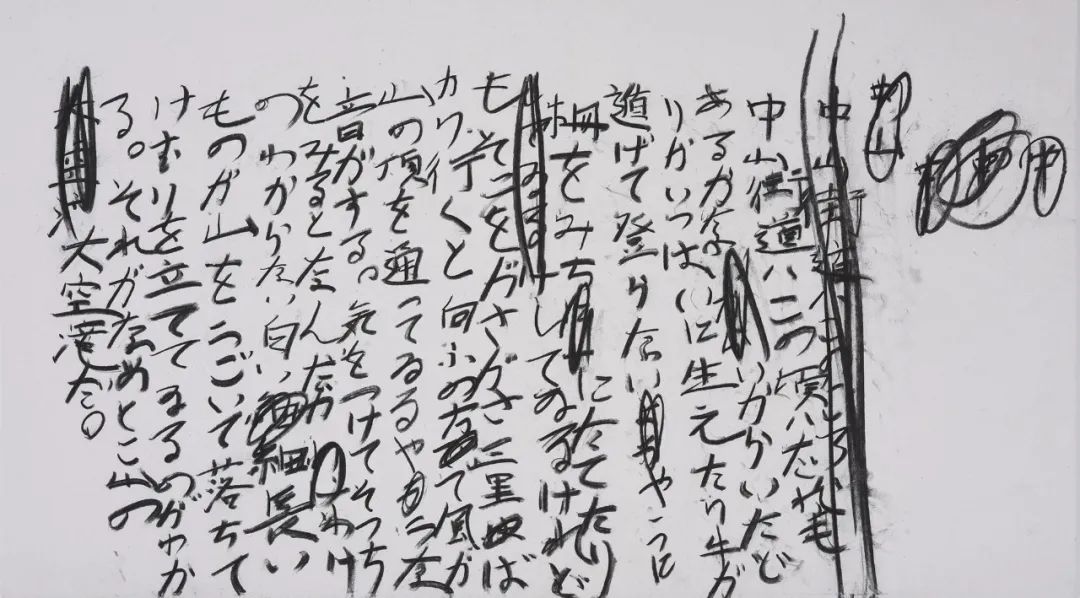 中山街道ハこのころハだれも
中山街道ハこの頃ハだれも
あるかないからいたど
りがいっぱいに生えたり牛が
遁げて登らないやうに
柵をみちにたてたり
してゐるけれど
もそこをガさガさ三里ば
かり行くと向ふの方で風が
山の頂を通ってゐるやうな
音がする。気をつけてそっち
をみるとなんだかわけ
のわからない白い細長い
ものが山をうごいて落ちて
けむりを立ててゐるのがわか
る。それがなめとこ山の
大空滝だ。